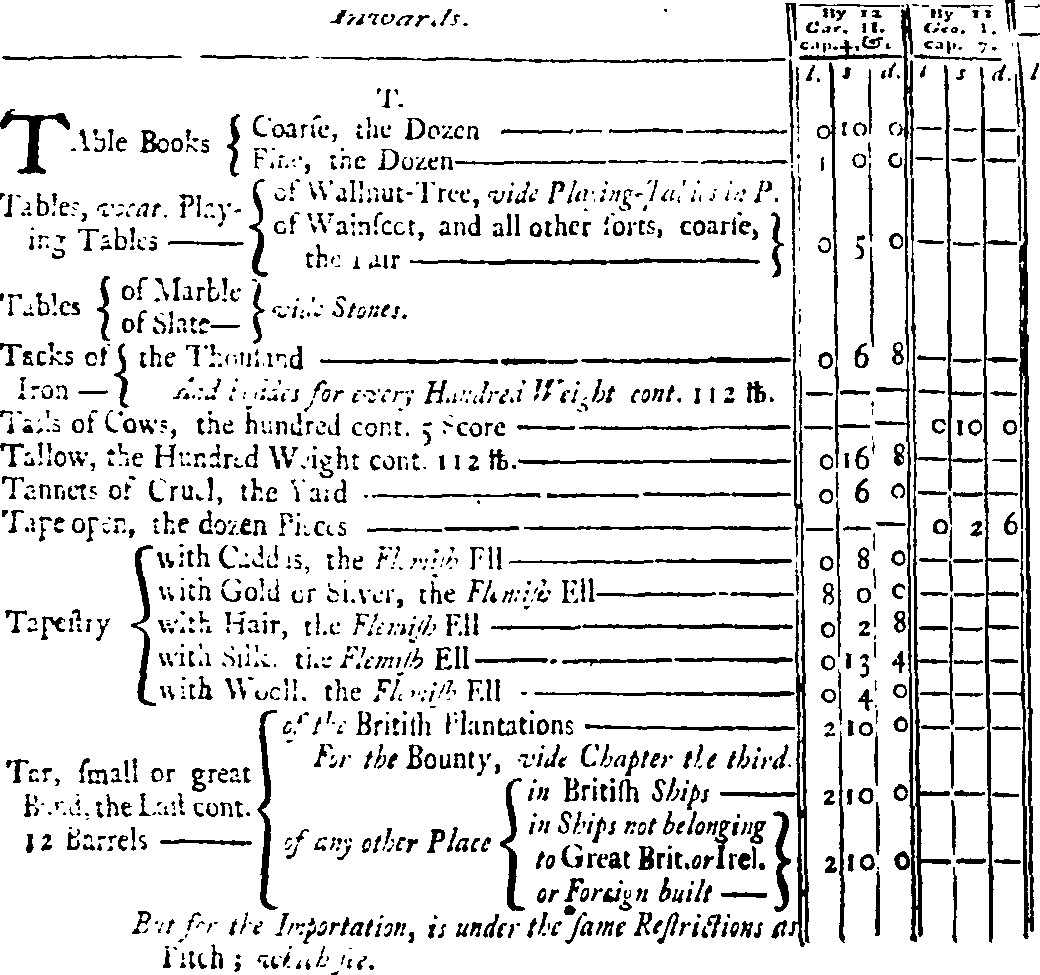 Inwards.
By 12 Car. II. cap. 4, &c. By 11 Geo. I. cap. 7.
l. s d. l s d. l
T.
TAble Books { Coarſe, the Dozen — 0 10 0 — — —
Fine, the Dozen — 1 0 0 — — —
Tables, vocat. Play- { of Wallnut-Tree, vide Playing-Tables in P.
ing Tables — of Wainſcot, and all other ſorts, coarſe, }
the Pair — 0 5 0 — — —
Tables { of Marble } vide Stones.
of Slate—
Tacks of { the Thouſand — 0 6 8 — — —
Iron — And beſides for every Hundred Weight cont. 112 ℔. — — — — — —
Tails of Cows, the hundred cont. 5 Score — — — — 0 10 0
Tallow, the Hundred Weight cont. 112 ℔. — 0 16 8 — — —
Tannets of Cruel, the Yard — 0 6 0 — — —
Tape open, the dozen Pieces — — — — 0 2 6
Tapeſtry { with Caddis, the Flemiſh Ell — 0 8 0 — — —
with Gold or Silver, the Flemiſh Ell — 8 0 0 — — —
with Hair, the Flemiſh Ell — 0 2 8 — — —
with Silk, the Flemiſh Ell — 0 13 4 — — —
with Wooll, the Flemiſh Ell — 0 4 0 — — —
Tar, ſmall or great Band, the Laſt cont. 12 Barrels — { of the Britiſh Plantations — 2 10 0 — — —
For the Bounty, vide Chapter the third.
of any other Place { in Britiſh Ships — 2 10 0 — — —
in Ships not belonging }
to Great Brit. or Irel. 2 10 0 — — —
or Foreign built —
But for the Importation, is under the ſame Reſtrictions as
Pitch ; which ſee.